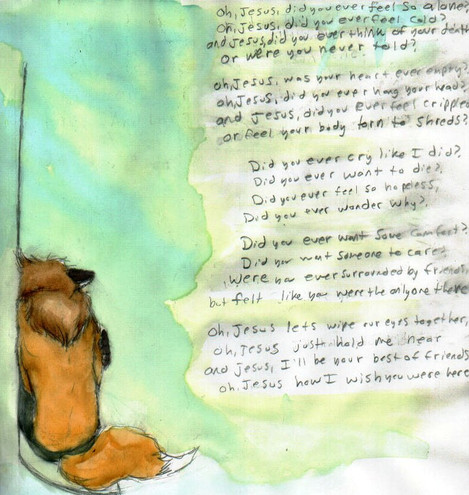 Oh, Jesus, did you ever feel so alone?
Oh, Jesus, did you ever feel cold?
and Jesus, did you ever think of your death
or were you never told?
Oh, Jesus, was your heart ever empty?
Oh, Jesus, did you ever hang your head?
and Jesus, did you ever feel crippled
or feel your body torn to shreds?
Did you ever cry like I did?
Did you ever want to die?
Did you ever feel so hopeless,
Did you ever wonder why?
Did you ever want some comfort?
Did you want someone to care?
Were you ever surrounded by friends
but felt like you were the only one there
Oh, Jesus lets wipe our eyes together,
Oh, Jesus just hold me near
and Jesus, I'll be your best of friends
Oh Jesus how I wish you were here